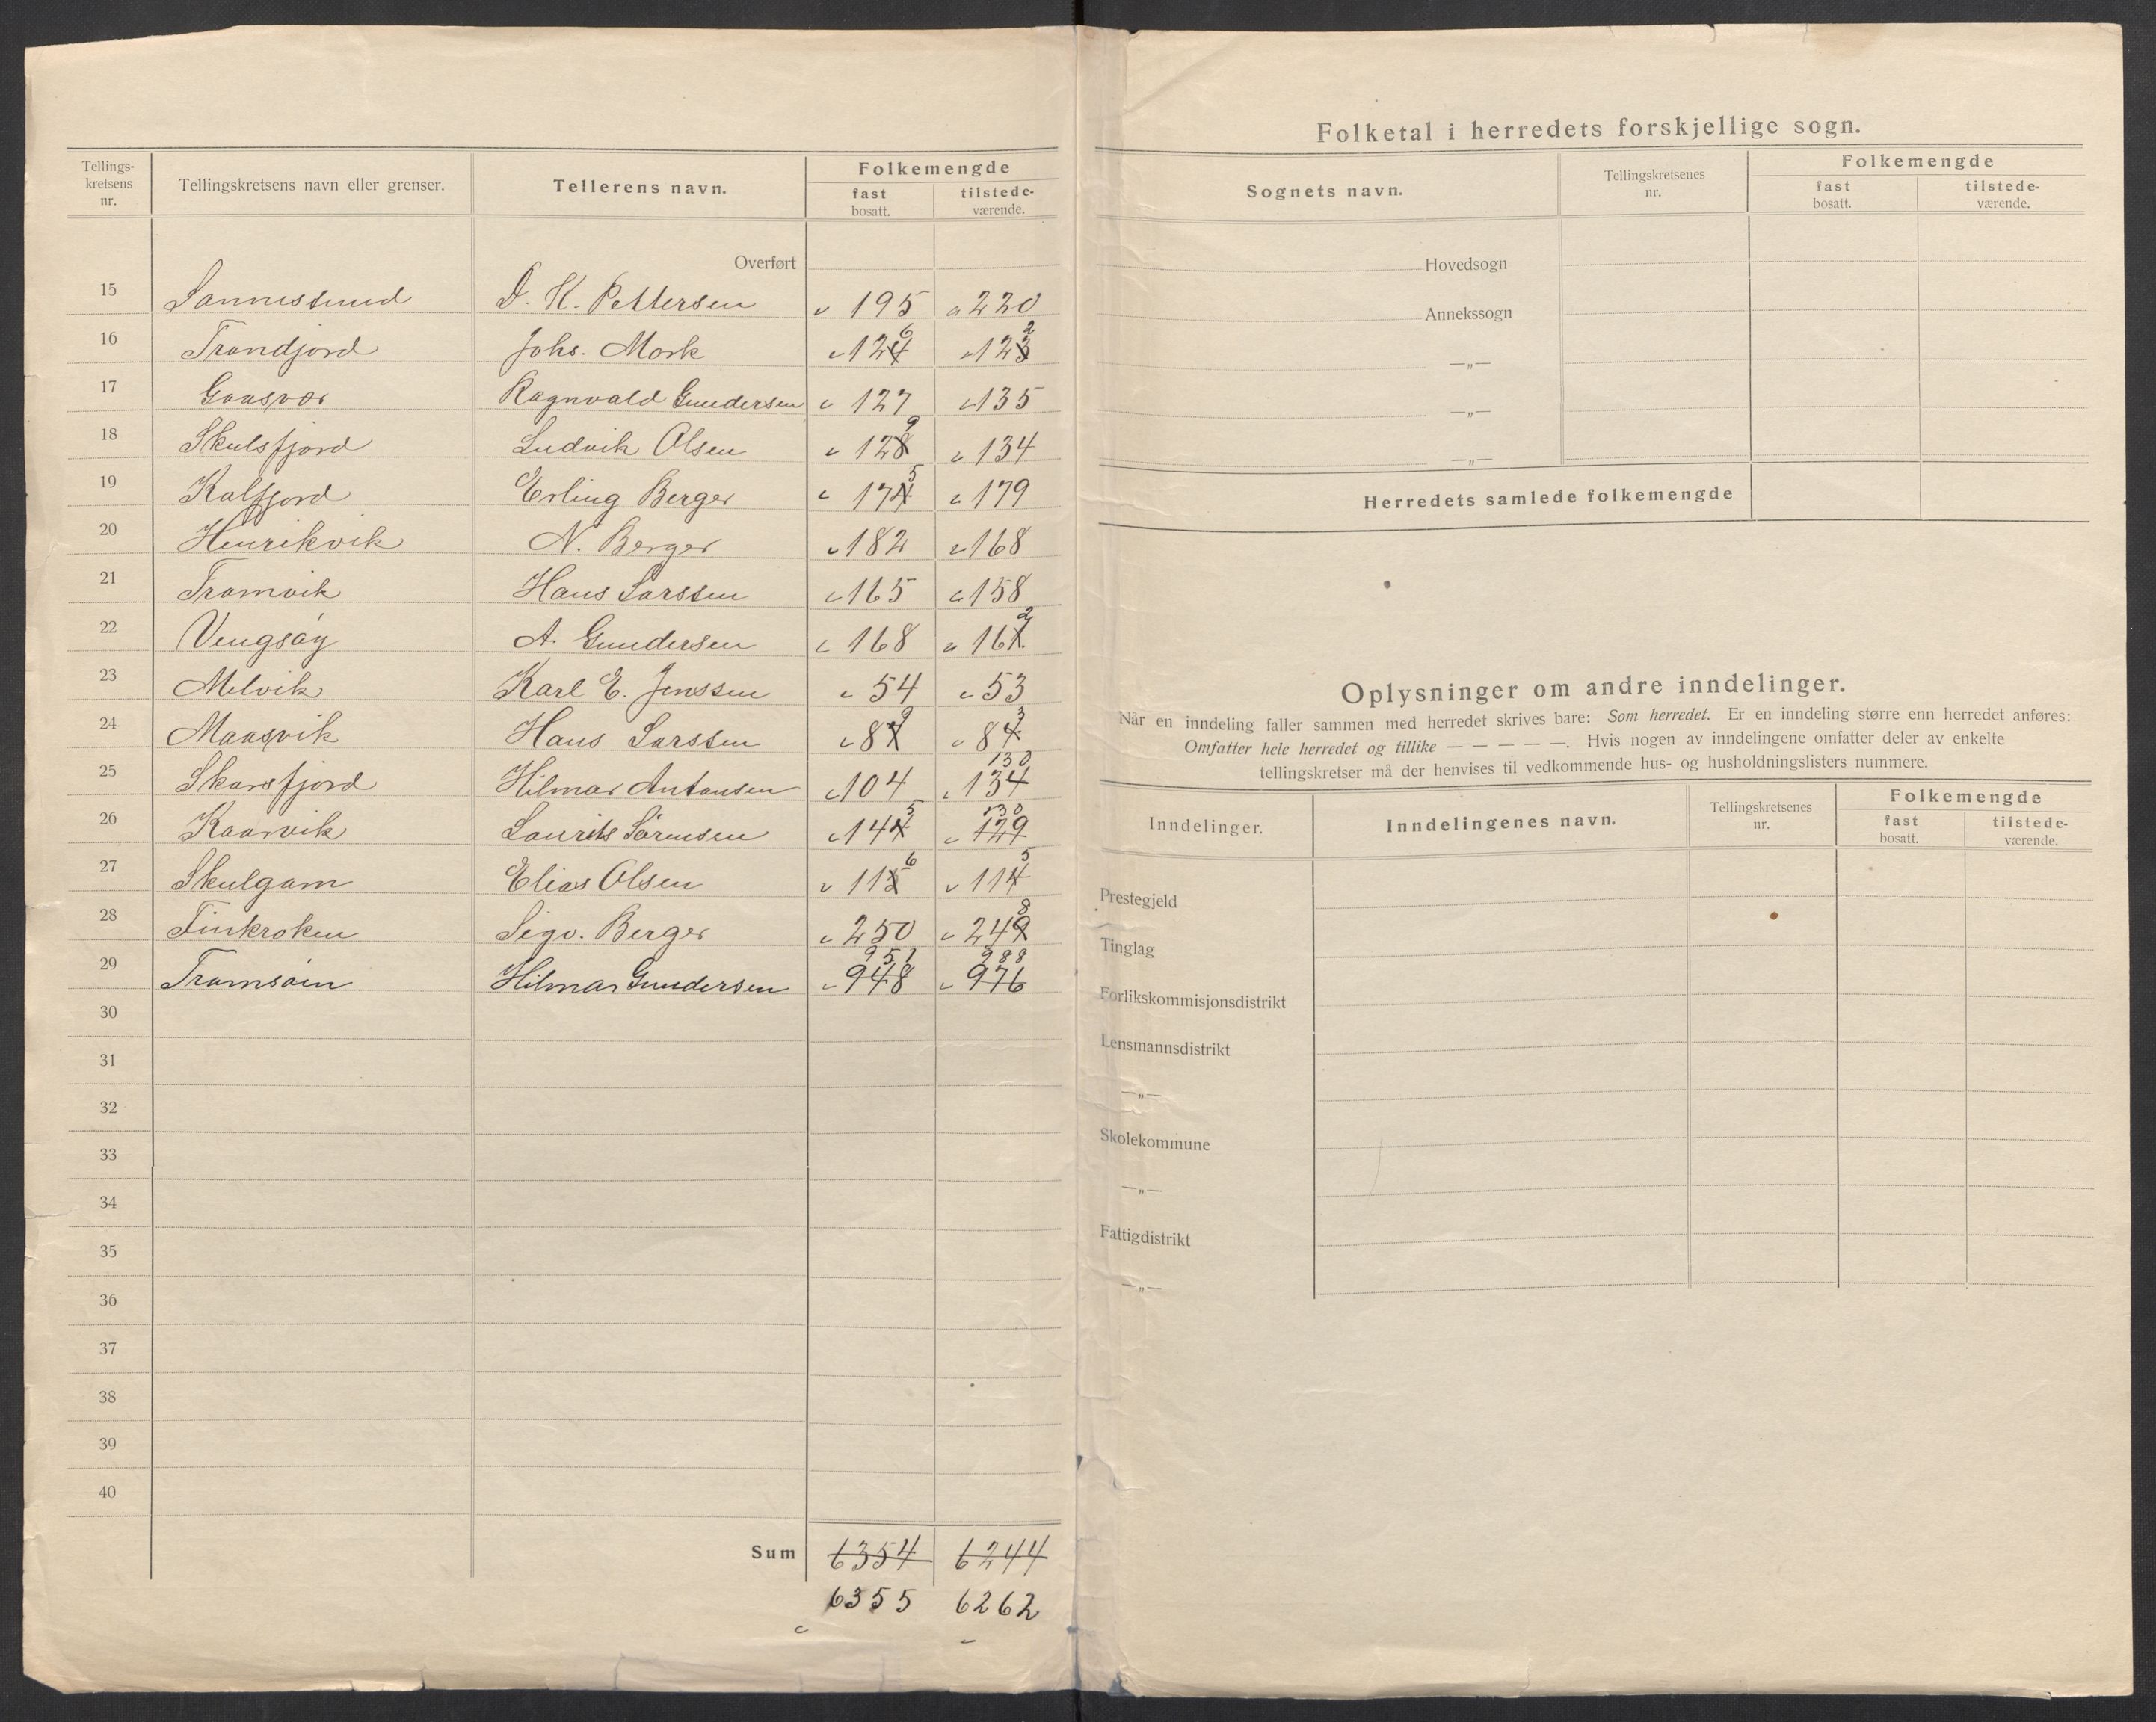 Tellings-
kretsens
nr.
Tellingskretsens navn eller grenser.
Tellerens navn.
Folkemengde
fast
bosatt.
tilstede-
værende.
Overført
15 Sannessund D. K. Pettersen 195 220
16 Trondjord Johs. Mork 124 6 123 2
17 Gaasvær Ragnvald Gundersen 127 135
18 Skulsfjord Ludvik Olsen 128 9 134
19 Kalfjord Erling Berger 174 5 179
20 Henrikvik N. Berger 182 168
21 Tromvik Hans Larssen 165 158
22 Vengsøy A. Gundersen 168 161 2
23 Melvik Karl E. Jenssen 54 53
24 Maasvik Hans Larssen 87 9 84 3
25 Skarsfjord Hilmar Antonsen 104 134 130
26 Kaarvik Laurits Sørensen 144 5 129 130
27 Skulgam Elias Olsen 115 6 114 5
28 Finkroken Sigv. Berger 250 249 8
29 Tromsøen Hilmar Gundersen 948 951 976 988
30
31
32
33
34
35
36
37
38
39
40
Sum 6354 6244
6355 6262
Folketal i herredets forskjellige sogn.
Sognets navn.
Tellingskretsenes
nr.
Folkemengde
fast
bosatt.
tilstede-
værende.
Hovedsogn
Annekssogn
—„—
—„—
—„—
Herredets samlede folkemengde
Oplysninger om andre inndelinger.
Når en inndeling faller sammen med herredet skrives bare: Som herredet. Er en inndeling større enn herredet anføres:
Omfatter hele herredet og tillike — — — — —. Hvis nogen av inndelingene omfatter deler av enkelte
tellingskretser må der henvises til vedkommende hus- og husholdningslisters nummere.
Inndelinger.
Inndelingenes navn.
Tellingskretsenes
nr.
Folkemengde
fast
bosatt.
tilstede-
værende.
Prestegjeld
Tinglag
Forlikskommisjonsdistrikt
Lensmannsdistrikt
—„—
Skolekommune
—„—
Fattigdistrikt
—„—